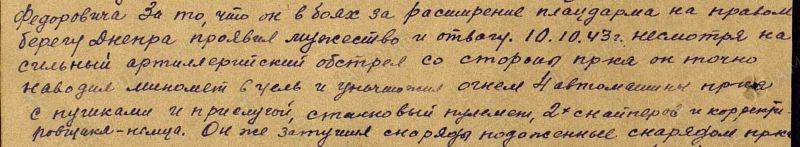 Федоровича За то, что он в боях за расширение плацдарма на правом
берегу Днепра проявил мужество и отвагу. 10.10.43г. несмотря на
сильный артиллерийский обстрел со стороны пр-ка он точно
наводил миномет в цель и уничтожил огнем 4 автомашины пр-ка
с пушками и прислугой, станковый пулемет, 2х снайперов и корректи-
ровщика-немца. Он же затушил снаряды подоженные снарядом пр-ка